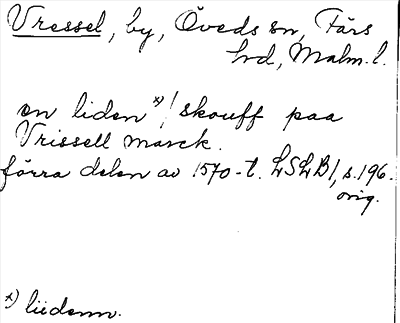 Vressel, by, Öveds sn, Färs
hrd, Malm. l.
en liden x) ! skouff paa
Vrissell marck.
förra delen av 1570-t. LSLB 1, s. 196.
orig.
x) liidenn.